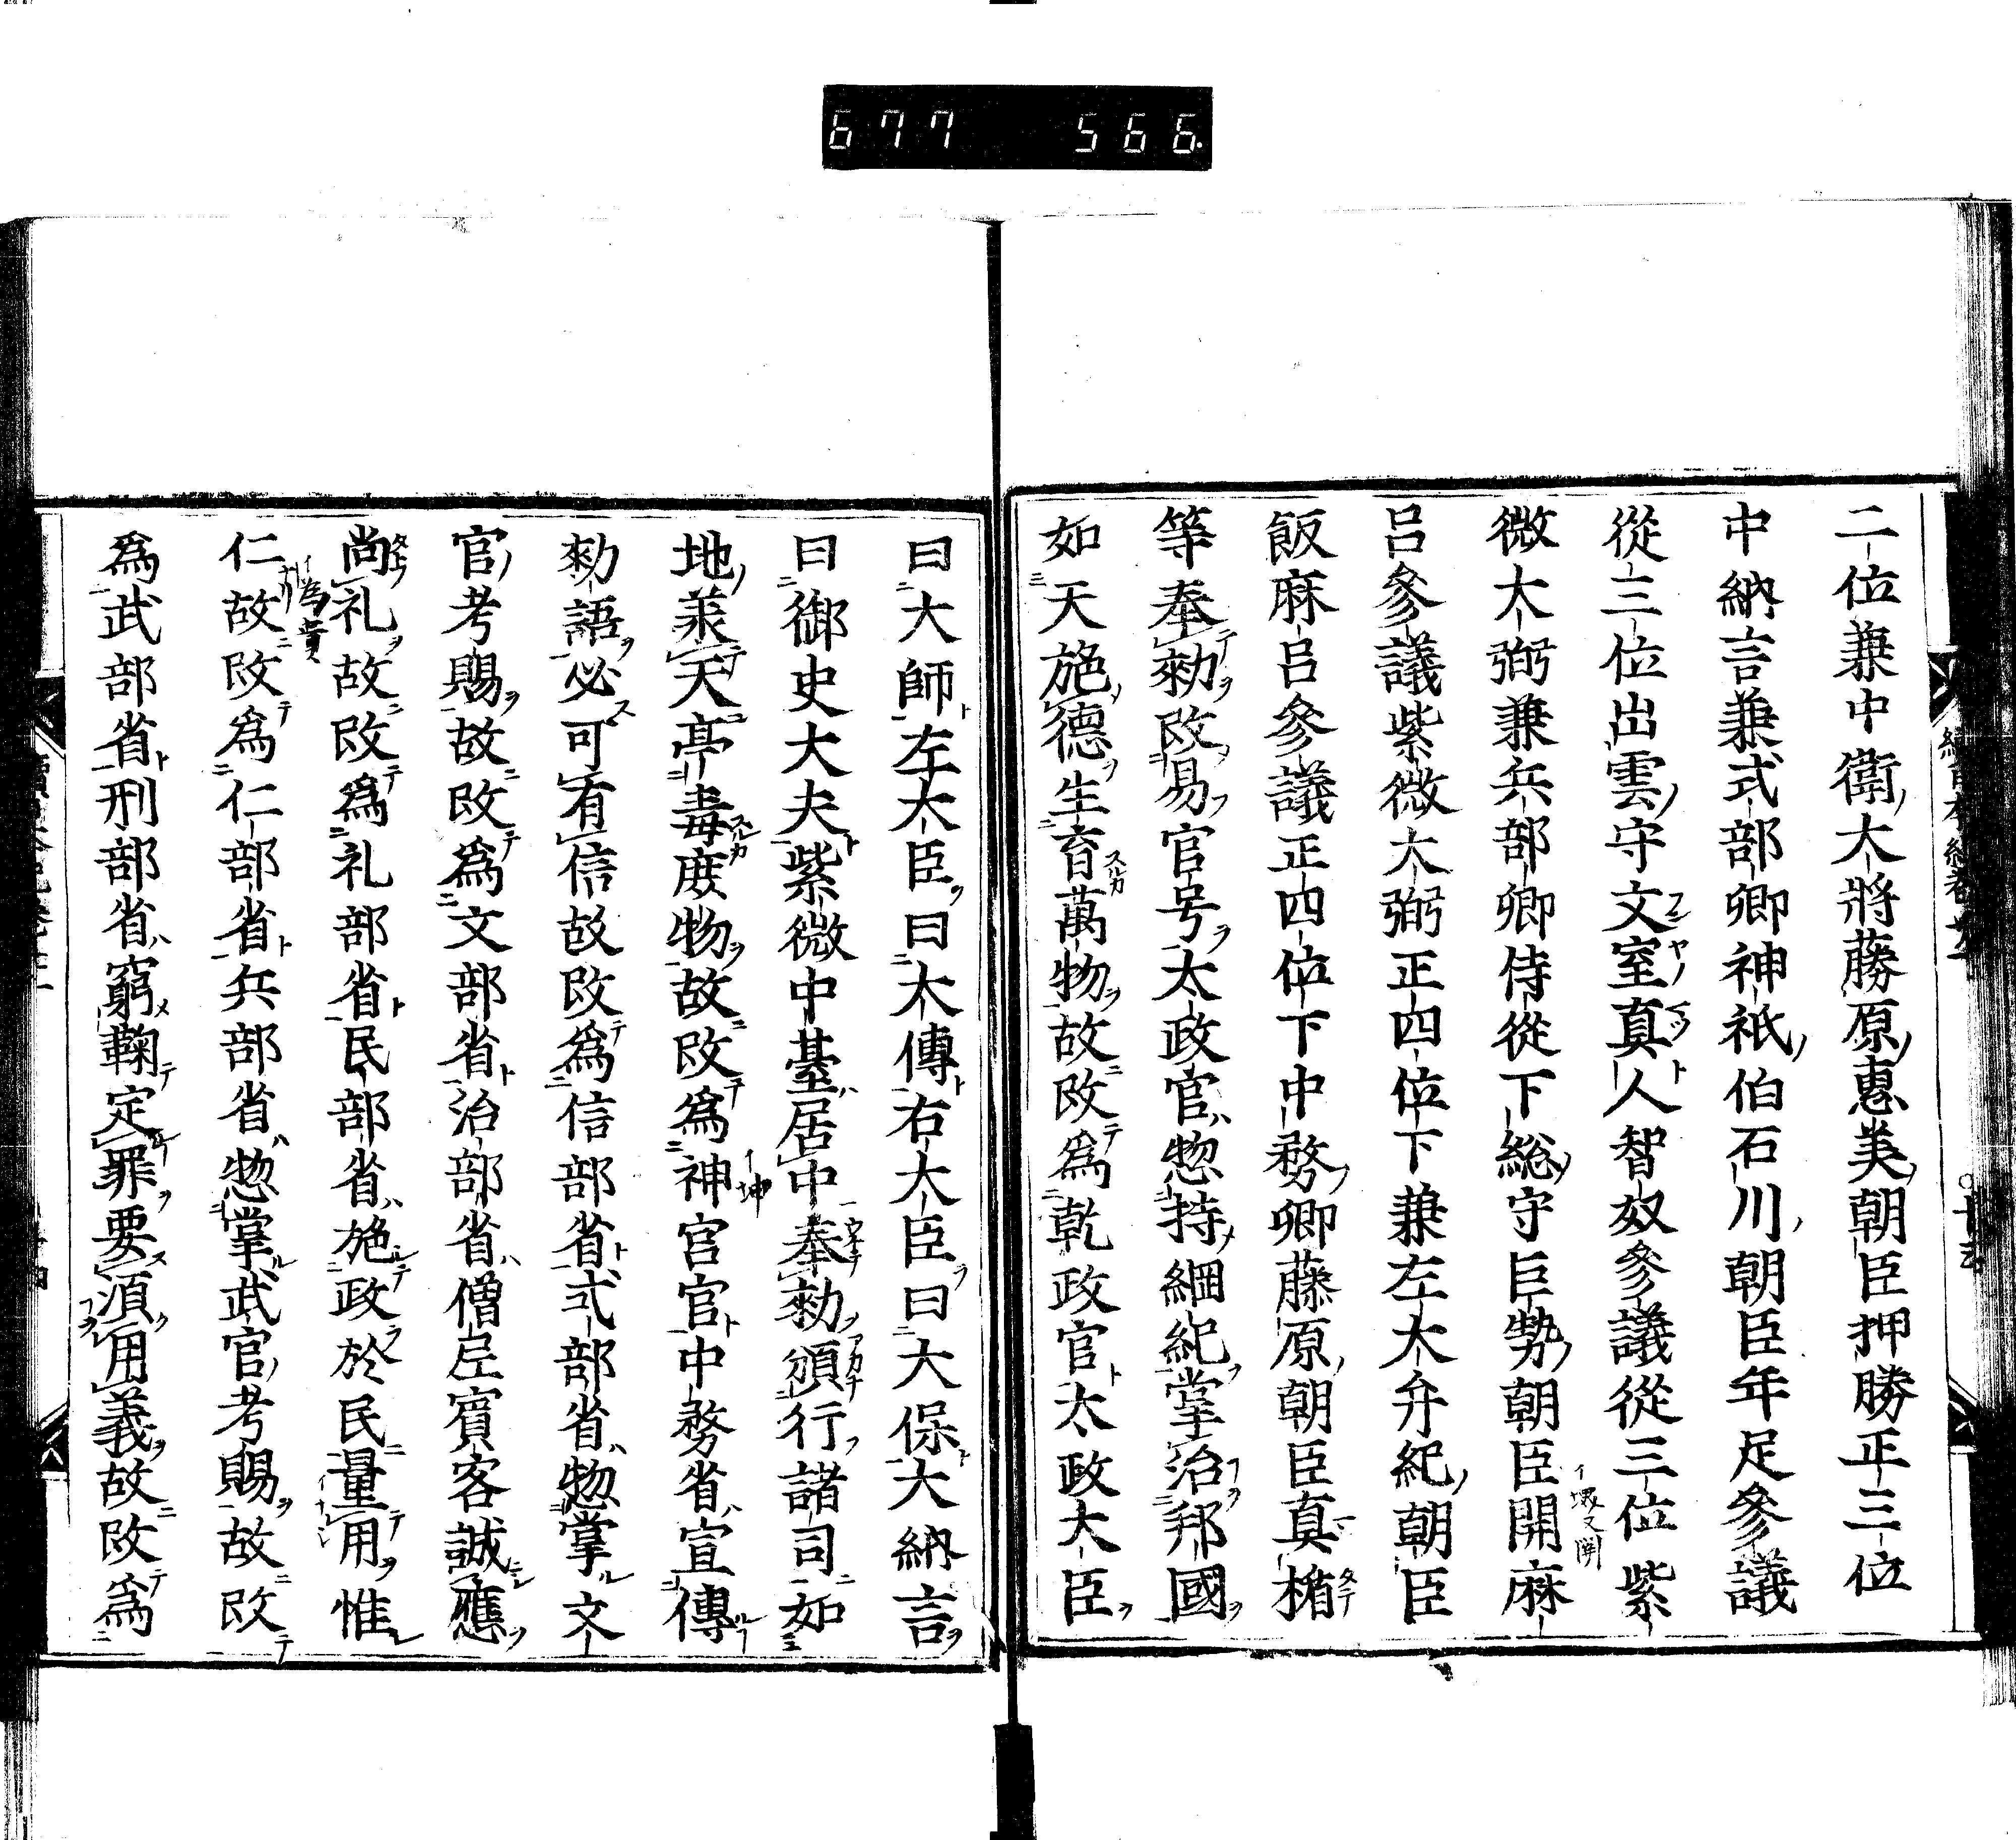 677 566
二位兼中衛大將藤原惠美朝臣押勝正三位
中納言兼式部卿神祇伯石川朝臣年足參議
從三位出雲守文室真人智奴參議從三位紫
微大弼兼兵部卿侍從下総守巨勢朝臣開麻
呂參議紫微大弼正四位下兼左大弁紀朝臣
飯麻呂參議正四位下中務卿藤原朝臣真楯
等奉勅改易官号太政官惣持綱紀掌治邦國
如天施德生育萬物故改為乾政官太政大臣
曰大師左大臣曰大傳右大臣曰大保大納言
曰御史大夫紫微中臺居中奉勅頒行諸司如
地羕天亭毒庶物故改為神官官中務省宣傳
勅語必可有信故改為信部省式部省惣掌文
官考賜故改為文部省治部省僧尼賓客誠應
尚礼故改為礼部省民部省施政於民量用惟
仁故改為仁部省兵部省惣掌武官考賜故改
為武部省刑部省窮鞫定罪要湏用義故改為